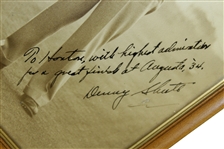 To Horton, with highest admiration
for a great finish at Augusta, '34.
Denny Shute